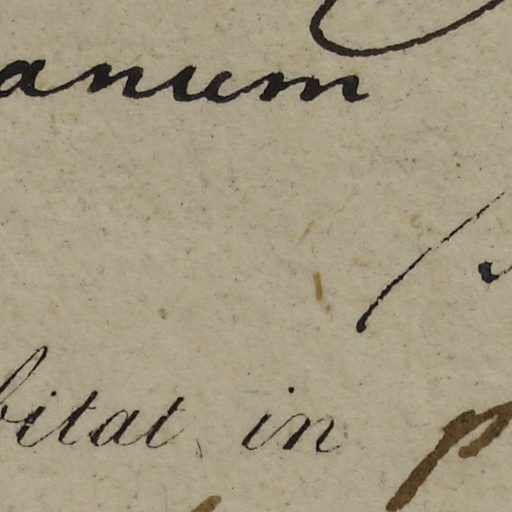 anum
bitat in p